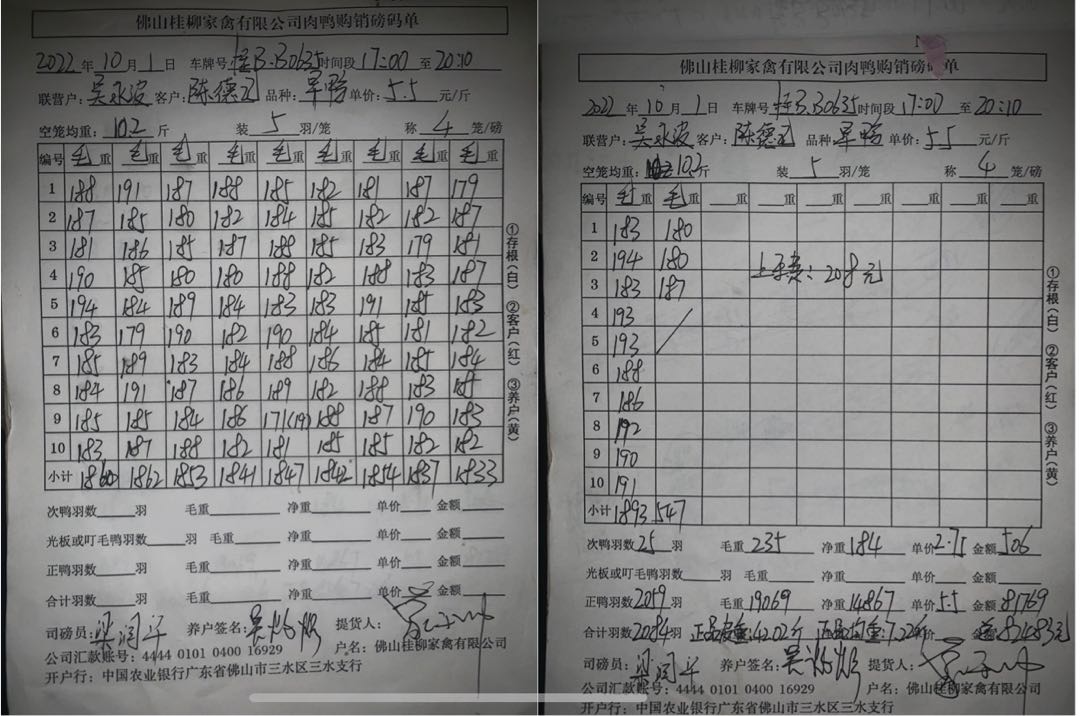 佛山桂柳家禽有限公司肉鸭购销磅码单
2022年10月1日 车牌号桂B.B0635时间段17:00至20:10
联营户:吴永波 客户:陈德 品种: 单价:5.5元/斤
空笼均重:10.2斤 装5羽/笼 称4笼/磅
编号 毛重 毛重 毛重 毛重 毛重 毛重 毛重 毛重 毛重
1 188 191 187 188 185 182 181 187 179
2 187 185 180 182 184 185 182 182 187
3 181 186 185 187 188 185 183 179 181
4 190 185 180 180 188 182 188 183 187
5 194 184 189 184 183 183 191 185 183
6 183 179 190 182 190 184 185 181 182
7 185 189 183 184 188 186 184 185 184
8 184 191 187 186 189 182 188 183 185
9 185 185 184 186 171(19) 188 187 190 183
10 183 187 188 182 181 185 185 182 182
小计 1860 1862 1853 1841 1847 1842 1854 1837 1833
次鸭羽数 羽 毛重 净重 单价 金额
光板或叮毛鸭羽数 羽 毛重 净重 单价 金额
正鸭羽数 羽 毛重 净重 单价 金额
合计羽数 羽 毛重 净重 单价 金额
司磅员:梁润平 养户签名:吴 提货人:
公司汇款账号:4444 0101 0400 16929 户名:佛山桂柳家禽有限公司
开户行:中国农业银行广东省佛山市三水区三水支行
①存根(白) ②客户(红) ③养户(黄)
佛山桂柳家禽有限公司肉鸭购销磅码单
2022年10月1日 车牌号桂B.B0635时间段17:00至20:10
联营户:吴永波 客户:陈德 品种 单价:5.5元/斤
空笼均重:10.2斤 装5羽/笼 称4笼/磅
编号 毛重 毛重 重 重 重 重 重 重 重
1 183 180
2 194 180
上车费:208元
3 183 187
4 193
5 193
6 188
7 186
8 192
9 190
10 191
小计 1893 547
次鸭羽数25羽 毛重235 净重184 单价2.75 金额506
光板或叮毛鸭羽数 羽 毛重 净重 单价 金额
正鸭羽数2059羽 毛重19069 净重14867 单价5.5 金额81769
合计羽数2084羽 正品皮重:4202斤 正品均重:7.22斤 金额82483元
司磅员:梁润平 养户签名:吴 提货人:
公司汇款账号:4444 0101 0400 16929 户名:佛山桂柳家禽有限公司
开户行:中国农业银行广东省佛山市三水区三水支行
①存根(白) ②客户(红) ③养户(黄)